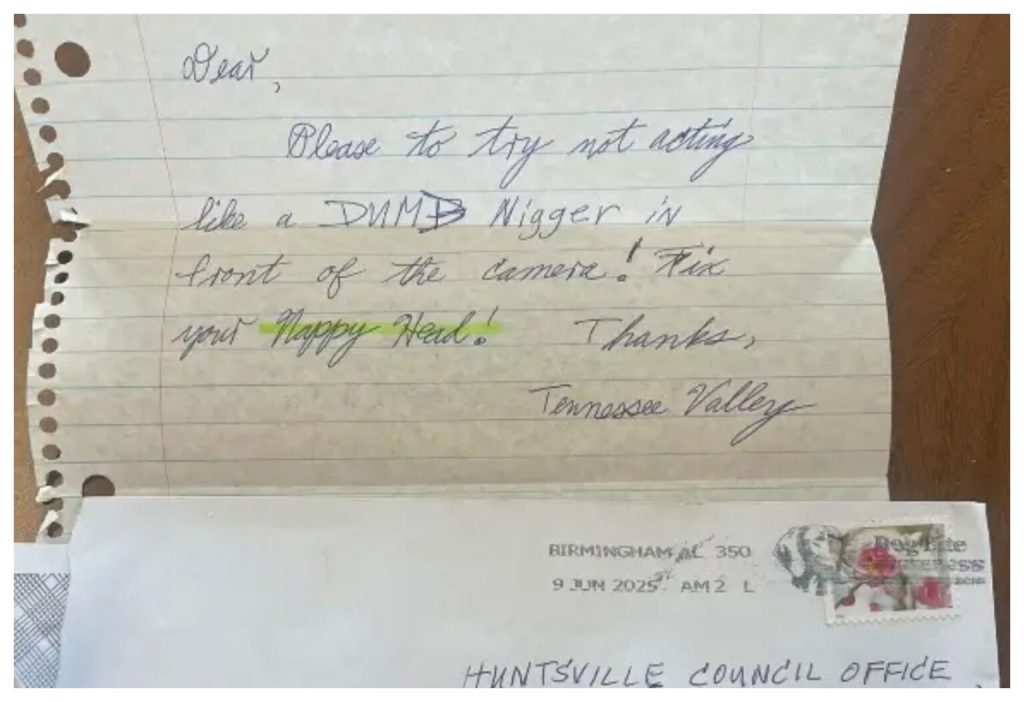 Dear,
Please to try not acting
like a DUMB Nigger in
front of the camera! Fix
your Nappy Head! Thanks,
Tennessee Valley
BIRMINGHAM AL 350
9 JUN 2025 AM 2 L
Dog Bite
HUNTSVILLE COUNCIL OFFICE